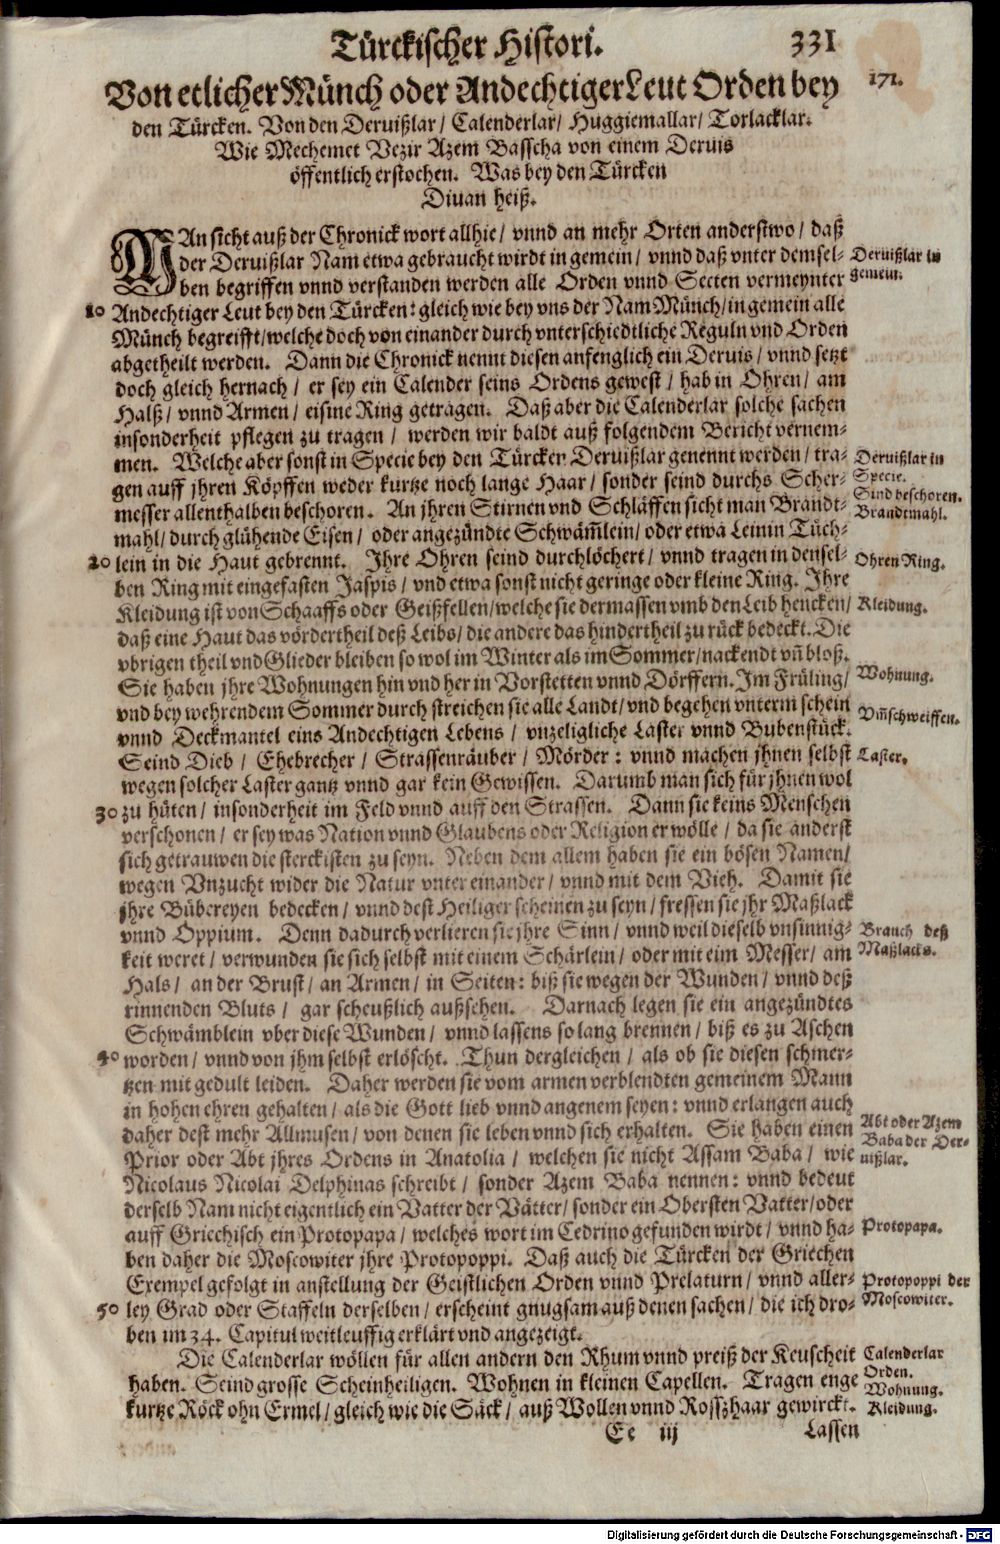 Türckischer Histori. 331
Von etlicher Münch oder Andechtiger Leut Orden bey 171.
den Türcken. Von den Deruißlar/ Calenderlar/ Huggiemallar/ Torlacklar.
Wie Mechemet Vezir Azem Basscha von einem Deruis
öffentlich erstochen. Was bey den Türcken
Diuan heiß.
MAn sicht auß der Chronick wort allhie/ vnnd an mehr Orten anderstwo/ daß
der Deruißlar Nam etwa gebraucht wirdt in gemein/ vnnd daß vnter demsel- Deruißlar in
ben begriffen vnnd verstanden werden alle Orden vnnd Secten vermeynter gemein.
10 Andechtiger Leut bey den Türcken: gleich wie bey vns der Nam Münch/ in gemein alle
Münch begreifft/ welche doch von einander durch vnterschiedtliche Reguln vnd Orden
abgetheilt werden. Dann die Chronick nennt diesen anfenglich ein Deruis/ vnnd setzt
doch gleich hernach/ er sey ein Calender seins Ordens gewest/ hab in Ohren/ am
Halß/ vnnd Armen/ eisine Ring getragen. Daß aber die Calenderlar solche sachen
insonderheit pflegen zu tragen/ werden wir baldt auß folgendem Bericht vernem-
men. Welche aber sonst in Specie bey den Türcken Deruißlar genennt werden/ tra- Deruißlar in
gen auff jhren Köpffen weder kurtze noch lange Haar/ sonder seind durchs Scher- Specie.
Sind beschoren.
messer allenthalben beschoren. An jhren Stirnen vnd Schläffen sicht man Brandt- Brandtmahl.
mahl/ durch glühende Eisen/ oder angezündte Schwäm̃lein/ oder etwa Leinin Tüch-
20 lein in die Haut gebrennt. Ihre Ohren seind durchlöchert/ vnnd tragen in densel- Ohren Ring.
ben Ring mit eingefasten Jaspis/ vnd etwa sonst nicht geringe oder kleine Ring. Ihre
Kleidung ist von Schaaffs oder Geißfellen/ welche sie dermassen vmb den Leib hencken/ Kleidung.
daß eine Haut das vördertheil deß Leibs/ die andere das hindertheil zu rück bedeckt. Die
vbrigen theil vnd Glieder bleiben so wol im Winter als im Sommer/ nackendt vn̄ bloß.
Sie haben jhre Wohnungen hin vnd her in Vorstetten vnnd Dörffern. Im Früling/ Wohnung.
vnd bey wehrendem Sommer durch streichen sie alle Landt/ vnd begehen vnterm schein Vm̃schweiffen.
vnnd Deckmantel eins Andechtigen Lebens/ vnzeligliche Laster vnnd Bubenstück.
Seind Dieb/ Ehebrecher/ Strassenräuber/ Mörder: vnnd machen jhnen selbst Laster.
wegen solcher Laster gantz vnnd gar kein Gewissen. Darumb man sich für jhnen wol
30 zu hüten/ insonderheit im Feld vnnd auff den Strassen. Dann sie keins Menschen
verschonen/ er sey was Nation vnnd Glaubens oder Religion er wölle/ da sie anderst
sich getrauwen die sterckisten zu seyn. Neben dem allem haben sie ein bösen Namen/
wegen Vnzucht wider die Natur vnter einander/ vnnd mit dem Vieh. Damit sie
jhre Bübereyen bedecken/ vnnd dest Heiliger scheinen zu seyn/ fressen sie jhr Maßlack
vnnd Oppium. Denn dadurch verlieren sie jhre Sinn/ vnnd weil dieselb vnsinnig- Brauch deß
keit weret/ verwunden sie sich selbst mit einem Schärlein/ oder mit eim Messer/ am Maßlacks.
Hals/ an der Brust/ an Armen/ in Seiten: biß sie wegen der Wunden/ vnnd deß
rinnenden Bluts/ gar scheußlich außschen. Darnach legen sie ein angezündtes
Schwämblein vber diese Wunden/ vnnd lassens so lang brennen/ biß es zu Aschen
40 worden/ vnnd von jhm selbst erlöscht. Thun dergleichen/ als ob sie diesen schmer-
tzen mit gedult leiden. Daher werden sie vom armen verblendten gemeinem Mann
in hohen ehren gehalten/ als die Gott lieb vnnd angenem seyen: vnnd erlangen auch
daher dest mehr Allmusen/ von denen sie leben vnnd sich erhalten. Sie haben einen Abt oder Azem
Baba der Der-
Prior oder Abt jhres Ordens in Anatolia/ welchen sie nicht Assam Baba/ wie uißlar.
Nicolaus Nicolai Delphinas schreibt/ sonder Azem Baba nennen: vnnd bedeut
derselb Nam nicht eigentlich ein Vatter der Vätter/ sonder ein Obersten Vatter/ oder
auff Griechisch ein Protopapa/ welches wort im Cedrino gefunden wirdt/ vnnd ha- Protopapa.
ben daher die Moscowiter jhre Protopoppi. Daß auch die Türcken der Griechen
Exempel gefolgt in anstellung der Geistlichen Orden vnnd Prelaturn/ vnnd aller- Protopoppi der
50 ley Grad oder Staffeln derselben/ erscheint gnugsam auß denen sachen/ die ich dro- Moscowiter.
ben im 34. Capitul weitleuffig erklärt vnd angezeigt.
Die Calenderlar wöllen für allen andern den Rhum vnnd preiß der Keuscheit Calenderlar
Orden.
haben. Seind grosse Scheinheiligen. Wohnen in kleinen Capellen. Tragen enge Wohnung.
kurtze Röck ohn Ermel/ gleich wie die Säck/ auß Wollen vnnd Rosszhaar gewirckt. Kleidung.
Ee iij Lassen
Digitalisierung gefördert durch die Deutsche Forschungsgemeinschaft - DFG